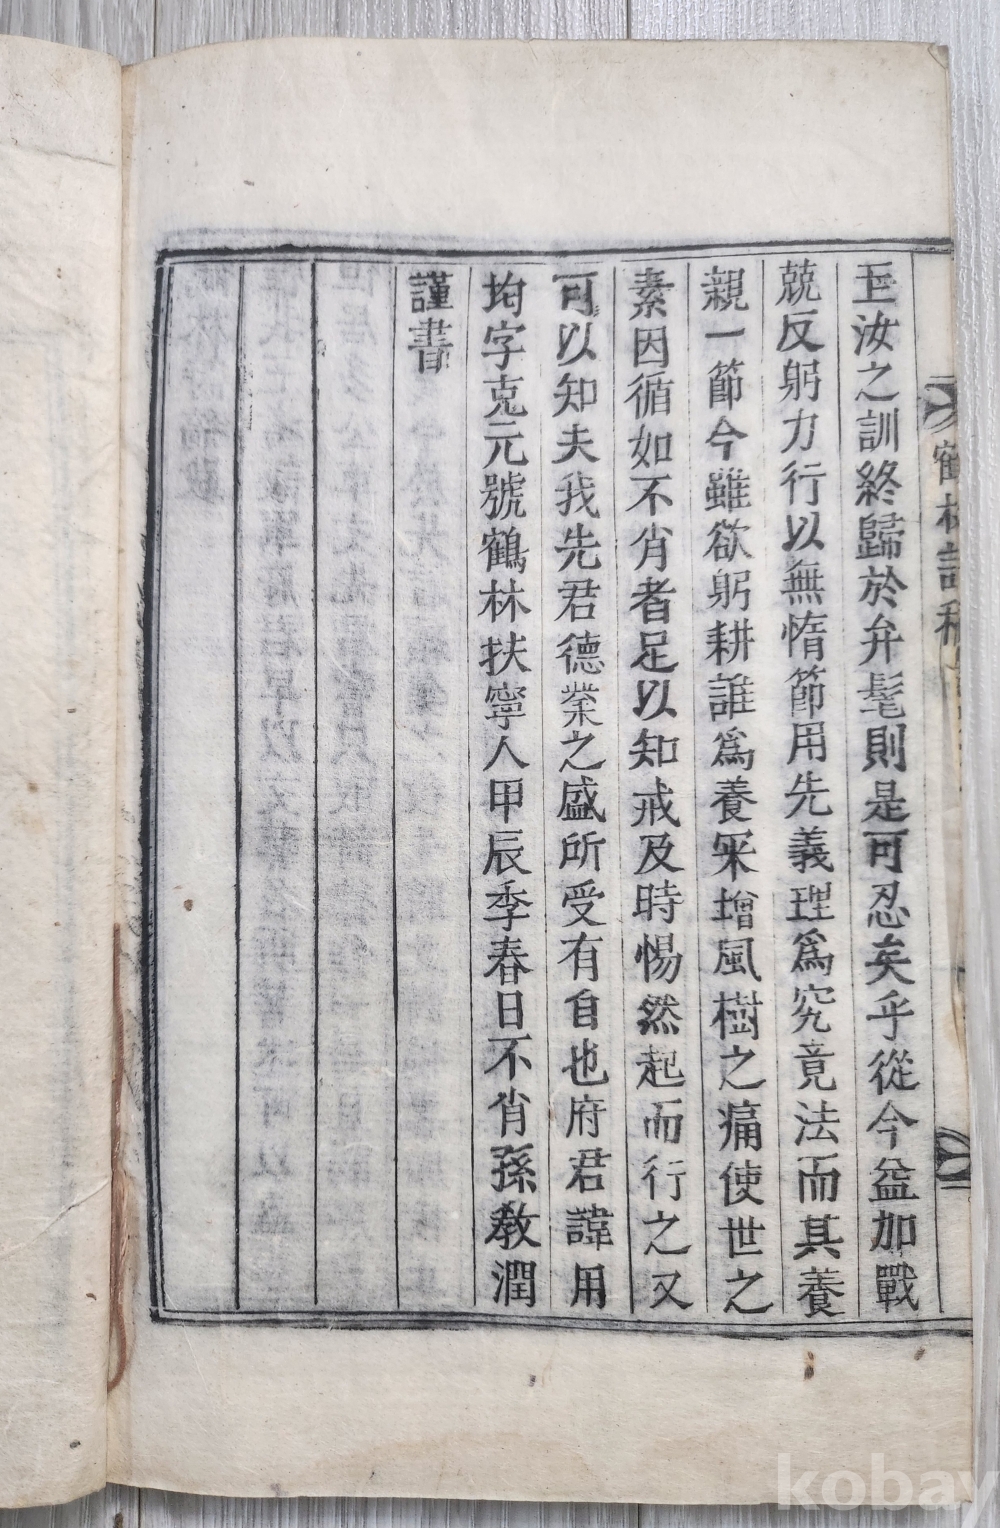 玉汝之訓終歸於弁髦則是可忍矣乎從今益加戰
兢反躬力行以無惰節用先義理爲究竟法而其養
親一節今雖欲躬耕誰爲養冞增風樹之痛使世之
素因循如不肖者足以知戒及時惕然起而行之又
可以知夫我先君德業之盛所受有自也府君諱用
均字克元號鶴林扶寧人甲辰季春日不肖孫敎潤
謹書
鶴林詩稿
kobay